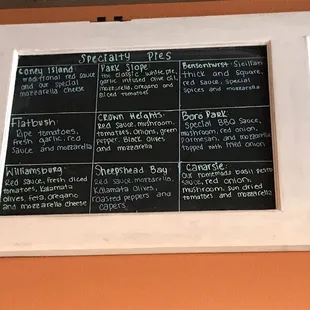 Specialty Pies
Coney Island
traditional red sauce
and our special
mozzarella cheese
Park Slope
the classic white pie,
garlic infused olive oil,
mozzarella, oregano and
sliced tomatoes
Bensonhurst: Sicilian
thick and square,
red sauce, special
spices and mozzarella
Flatbush:
Ripe tomatoes,
fresh garlic, red
sauce and mozzarella
Crown Heights:
Red sauce, mushroom,
tomatoes, onions, green
pepper, Black olives
and mozzarella
Boro Park:
Special BBQ sauce,
mushroom, red onion,
parmesan, and mozzarella
topped with fried onion
Williamsburg:
Red sauce, fresh diced
tomatoes, Kalamata
olives, feta, oregano
and mozzarella cheese
Sheepshead Bay
Red sauce, mozzarella,
Kalamata olives,
roasted peppers and
capers
Canarsie:
Our homemade basil pesto
sauce, red onion,
mushroom, sun dried
tomatoes and mozzarella